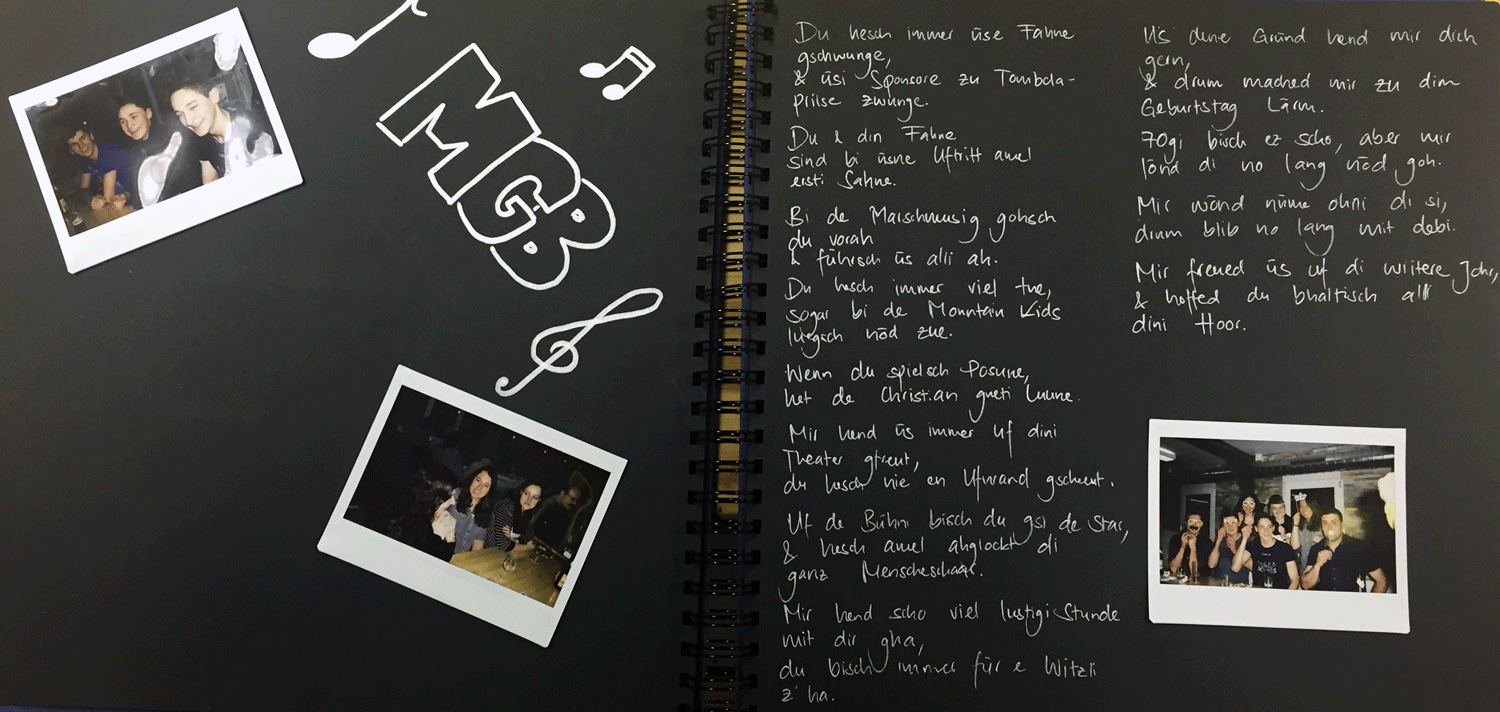 MGB
Du hesch immer üse Fahne
gschwunge,
& üsi Sponsore zu Tombola-
priise zwunge.
Du & din Fahne
sind bi üsne Uftritt amel
ersti Sahne.
Bi de Marschmusig gohsch
du vorah
& führsch üs alli ah.
Du hesch immer viel tue,
sogar bi de Mountain Kids
luegsch nöd zue.
Wenn du spielsch Posune,
het de Christian gueti Luune.
Mir hend üs immer uf dini
Theater gfreut,
du hesch nie en Ufwand gscheut.
Uf de Bühni bisch du gsi de Star,
& hesch amel ahglockt di
ganz Menscheschaar.
Mir hend scho viel lustigi Stunde
mit dir gha,
du bisch immer für e Witzli
z'ha.
Us dene Gründ hend mir dich
gern,
& drum mached mir zu dim
Geburtstag Lärm.
70gi bisch ez scho, aber mir
lönd di no lang nöd goh.
Mir wönd nüme ohni di si,
drum blib no lang mit debi.
Mir freued üs uf di wiitere Johr,
& hoffed du bhaltisch alli
dini Hoor.